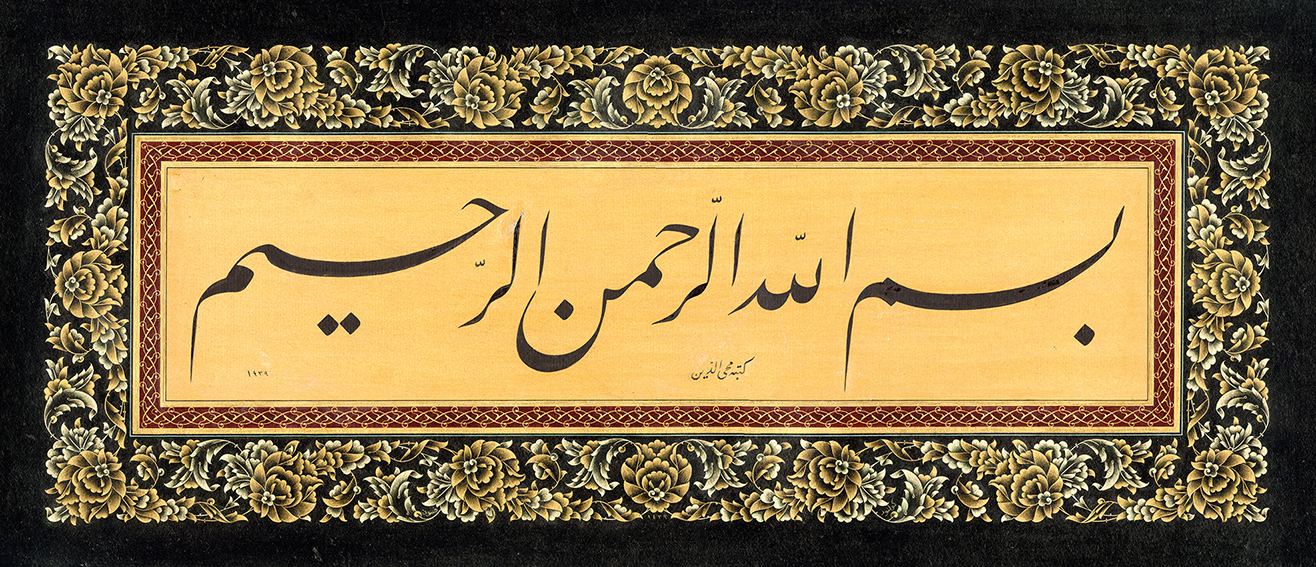 بسم الله الرحمن الرحيم
كتبه محي الدين
١٩٣٩